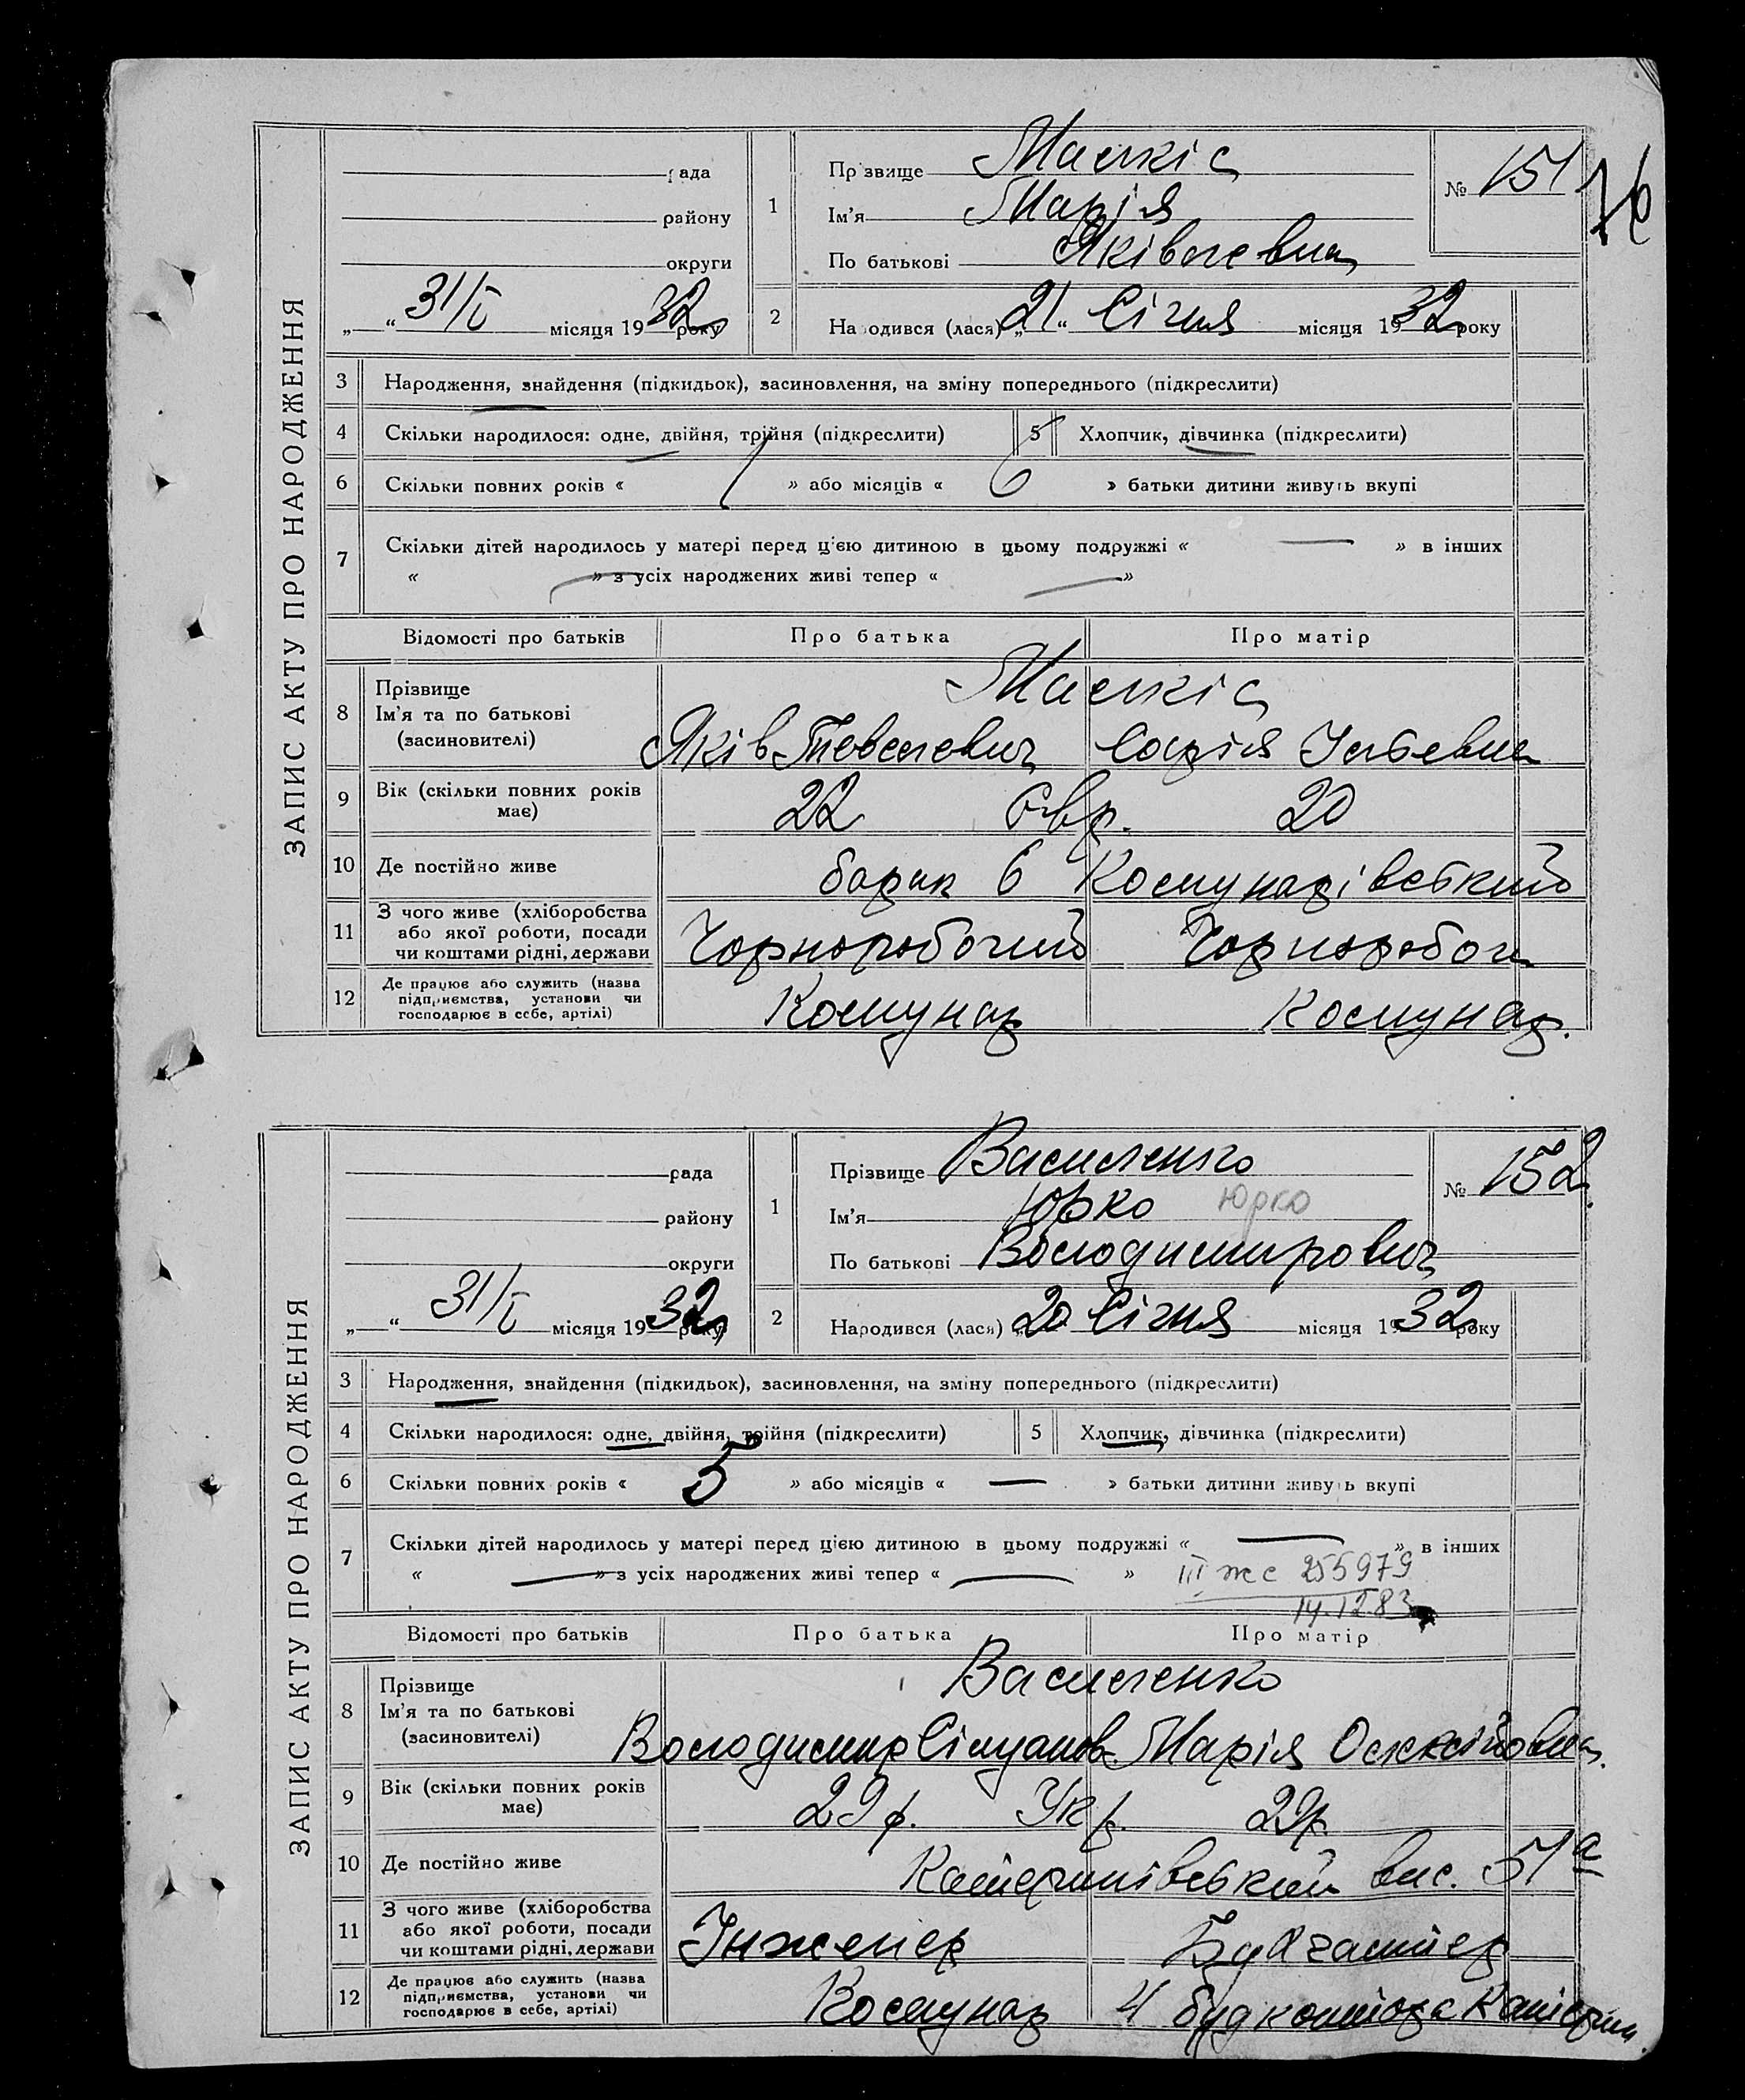 76
ЗАПИС АКТУ ПРО НАРОДЖЕННЯ
рада
району
округи
„ “ 31/I місяця 1932 року
1
Прізвище
Ім'я Марія
По батькові Яківлевна
№ 151
2
Народився (лася) „21“ Січня місяця 1932 року
3 Народження, знайдення (підкидьок), засиновлення, на зміну попереднього (підкреслити)
4 Скільки народилося: одне, двійня, трійня (підкреслити)
5 Хлопчик, дівчинка (підкреслити)
6 Скільки повних років « / » або місяців « 6 » батьки дитини живуть вкупі
7 Скільки дітей народилось у матері перед цією дитиною в цьому подружжі « — » в інших
« — » з усіх народжених живі тепер « — »
Відомості про батьків Про батька Про матір
8 Прізвище
Ім'я та по батькові
(засиновителі)
Яків
9 Вік (скільки повних років
має)
22 Євр. 20
10 Де постійно живе
барак 6 Комунарівський
11 З чого живе (хліборобства
або якої роботи, посади
чи коштами рідні, держави
Чорноробочий Чорнороboч
12 Де працює або служить (назва
підприємства, установи чи
господарює в себе, артілі)
Комунар Комунар.
ЗАПИС АКТУ ПРО НАРОДЖЕННЯ
рада
району
округи
„ “ 31/I місяця 1932 року
1
Прізвище Василенко
Ім'я Юрко Юрко
По батькові Володимирович
№ 152
2
Народився (лася) „20 Січня місяця 1932 року
3 Народження, знайдення (підкидьок), засиновлення, на зміну попереднього (підкреслити)
4 Скільки народилося: одне, двійня, трійня (підкреслити)
5 Хлопчик, дівчинка (підкреслити)
6 Скільки повних років « 5 » або місяців « — » батьки дитини живуть вкупі
7 Скільки дітей народилось у матері перед цією дитиною в цьому подружжі « — » в інших
« — » з усіх народжених живі тепер « — »
III жс 255979
14.12.83
Відомості про батьків Про батька Про матір
8 Прізвище
Ім'я та по батькові
(засиновителі)
Василенко
Володимир Марія
9 Вік (скільки повних років
має)
29 р. Укр. 29р.
10 Де постійно живе
Катеринівський вис. 51а
11 З чого живе (хліборобства
або якої роботи, посади
чи коштами рідні, держави
Інженер Бухгалтер
12 Де працює або служить (назва
підприємства, установи чи
господарює в себе, артілі)
Комунар 4 будконтора